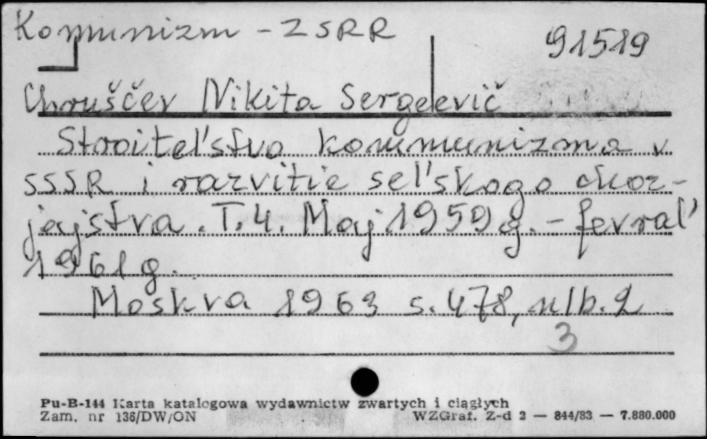 Komunizm - ZSRR
91519
Chruščev Nikita Sergeevič
Stroitel'stvo kommunizma v
SSSR i razvitie sel'skogo choz-
jajstva. T. 4. Maj 1959 g. - fevral'
1961 g.
Moskva 1963 s. 478, nlb. 2
3
Pu-B-144 Karta katalogowa wydawnictw zwartych i ciągłych
Zam. nr 136/DW/ON WZGraf. Z-d 2 — 844/83 — 7.880.000